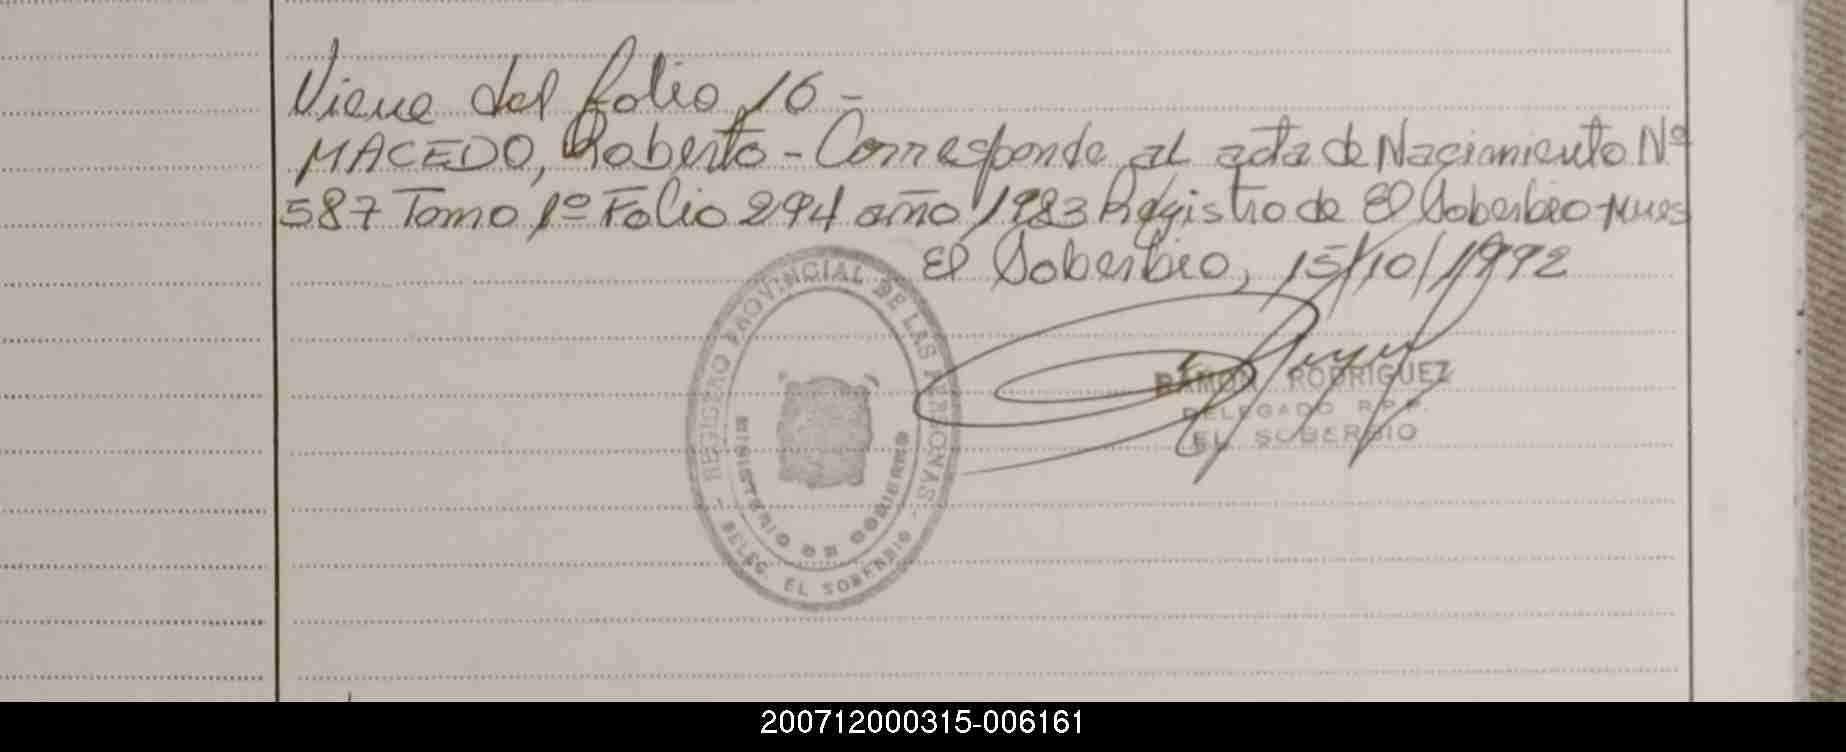 Viene del folio 16-
MACEDO, Roberto - Corresponde al acta de Nacimiento Nº
587 Tomo 1º Folio 294 año 1983 Registro de El Soberbio-Mnes
El Soberbio, 15/10/1992
REGISTRO PROVINCIAL DE LAS PERSONAS
MINISTERIO DE GOBIERNO
DELEG. EL SOBERBIO
RAMON RODRIGUEZ
DELEGADO R.P.P.
EL SOBERBIO
200712000315-006161